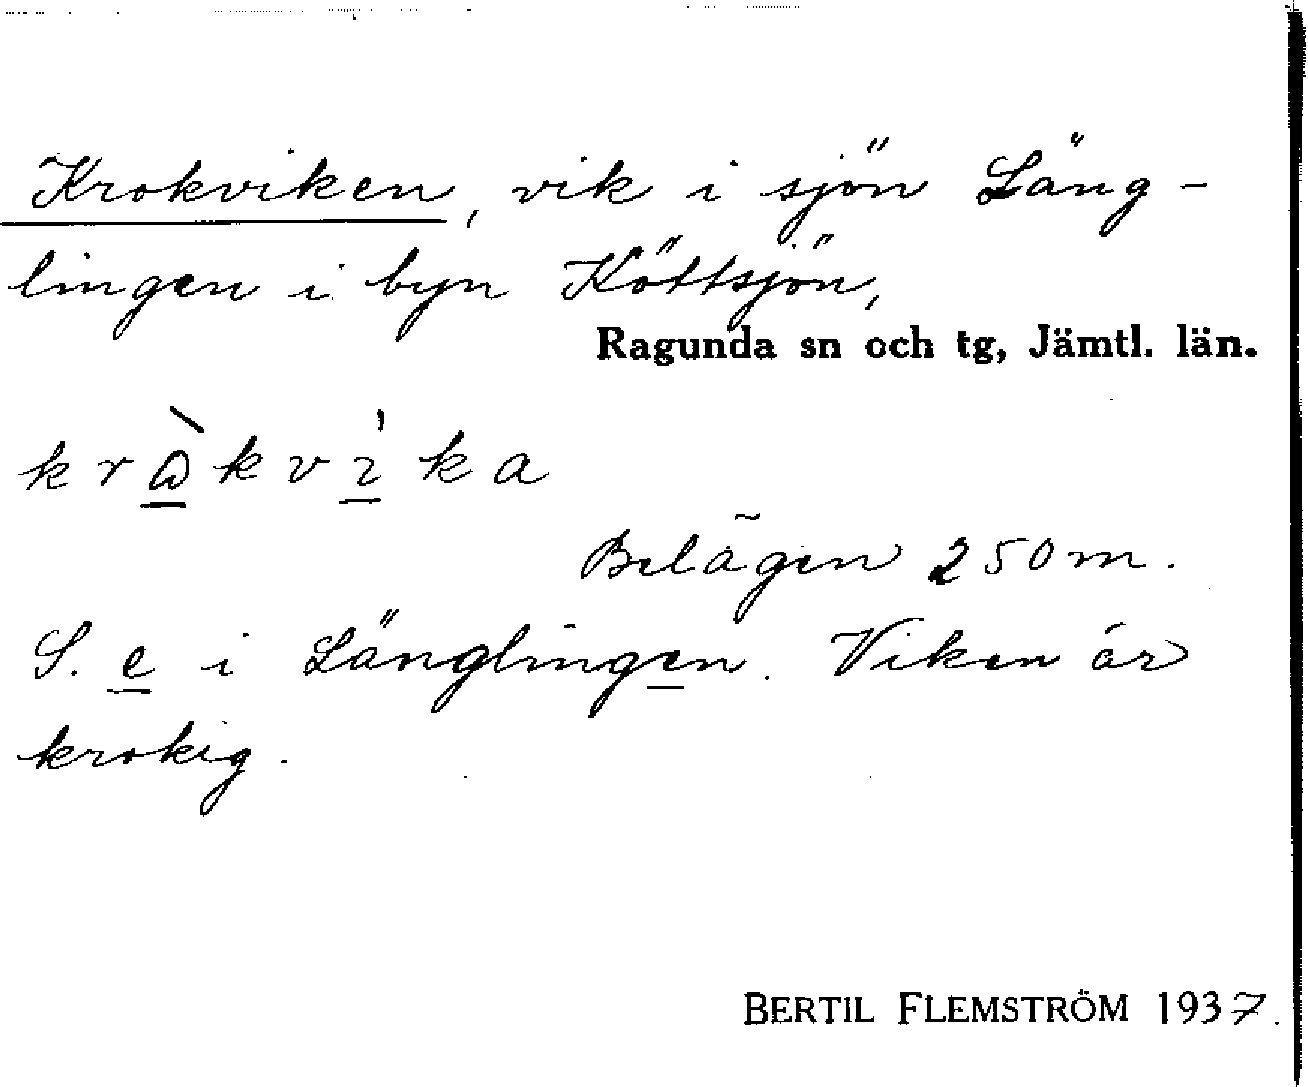 Krokviken, vik i sjön Läng-
lingen i byn Köttsjön,
Ragunda sn och tg, Jämtl. län.
krὼkvı̍ka
Belägen 250 m.
S. e i Länglingen. Viken är
krokig.
BERTIL FLEMSTRÖM 1937.